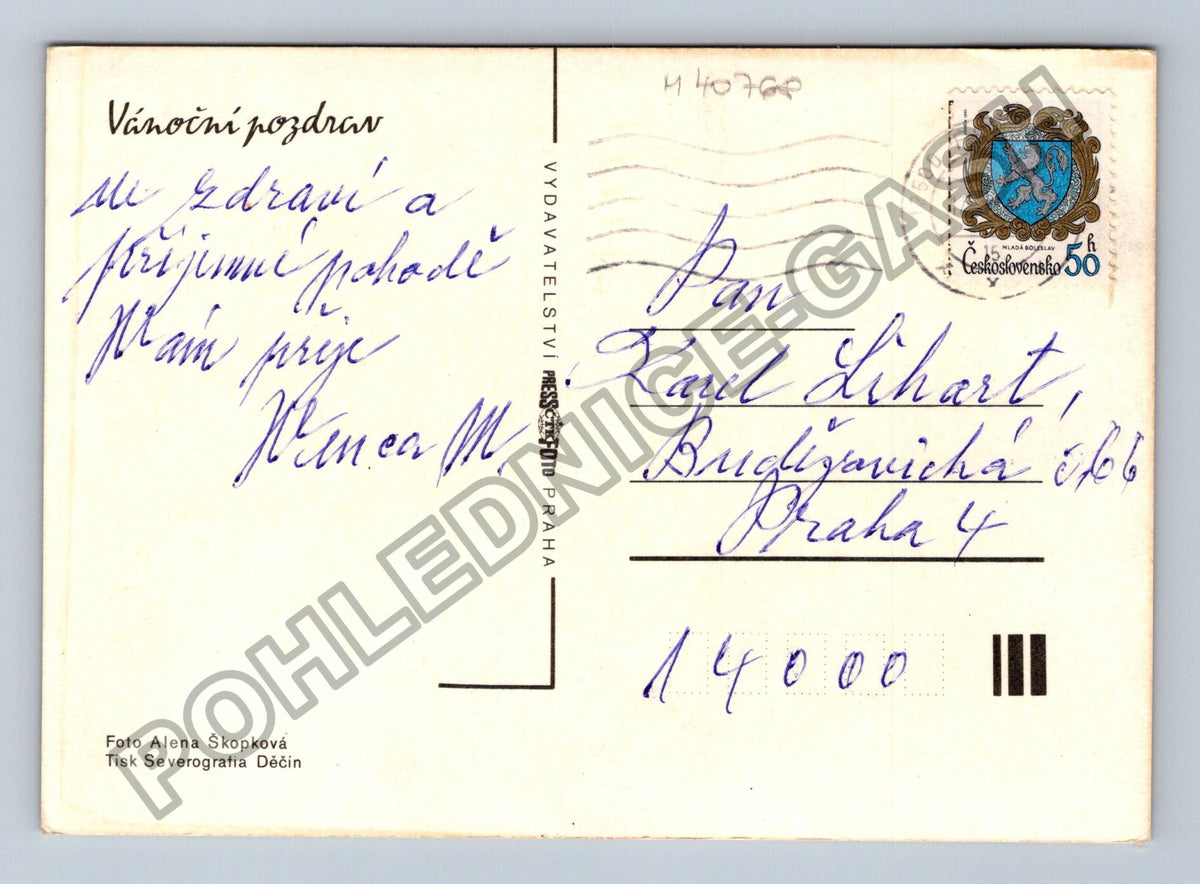 M 4076P
Vánoční pozdrav
ve zdraví a
příjemné pohodě
Vám přije
Venca M.
VYDAVATELSTVÍ PRESSFOTO PRAHA
ČTK
MLADÁ BOLESLAV
Československo 50 h
15
Pan
Karel Lihart,
Budějovická
Praha 4
14000
Foto Alena Škopková
Tisk Severografia Děčín
POHLEDNICE-GASH